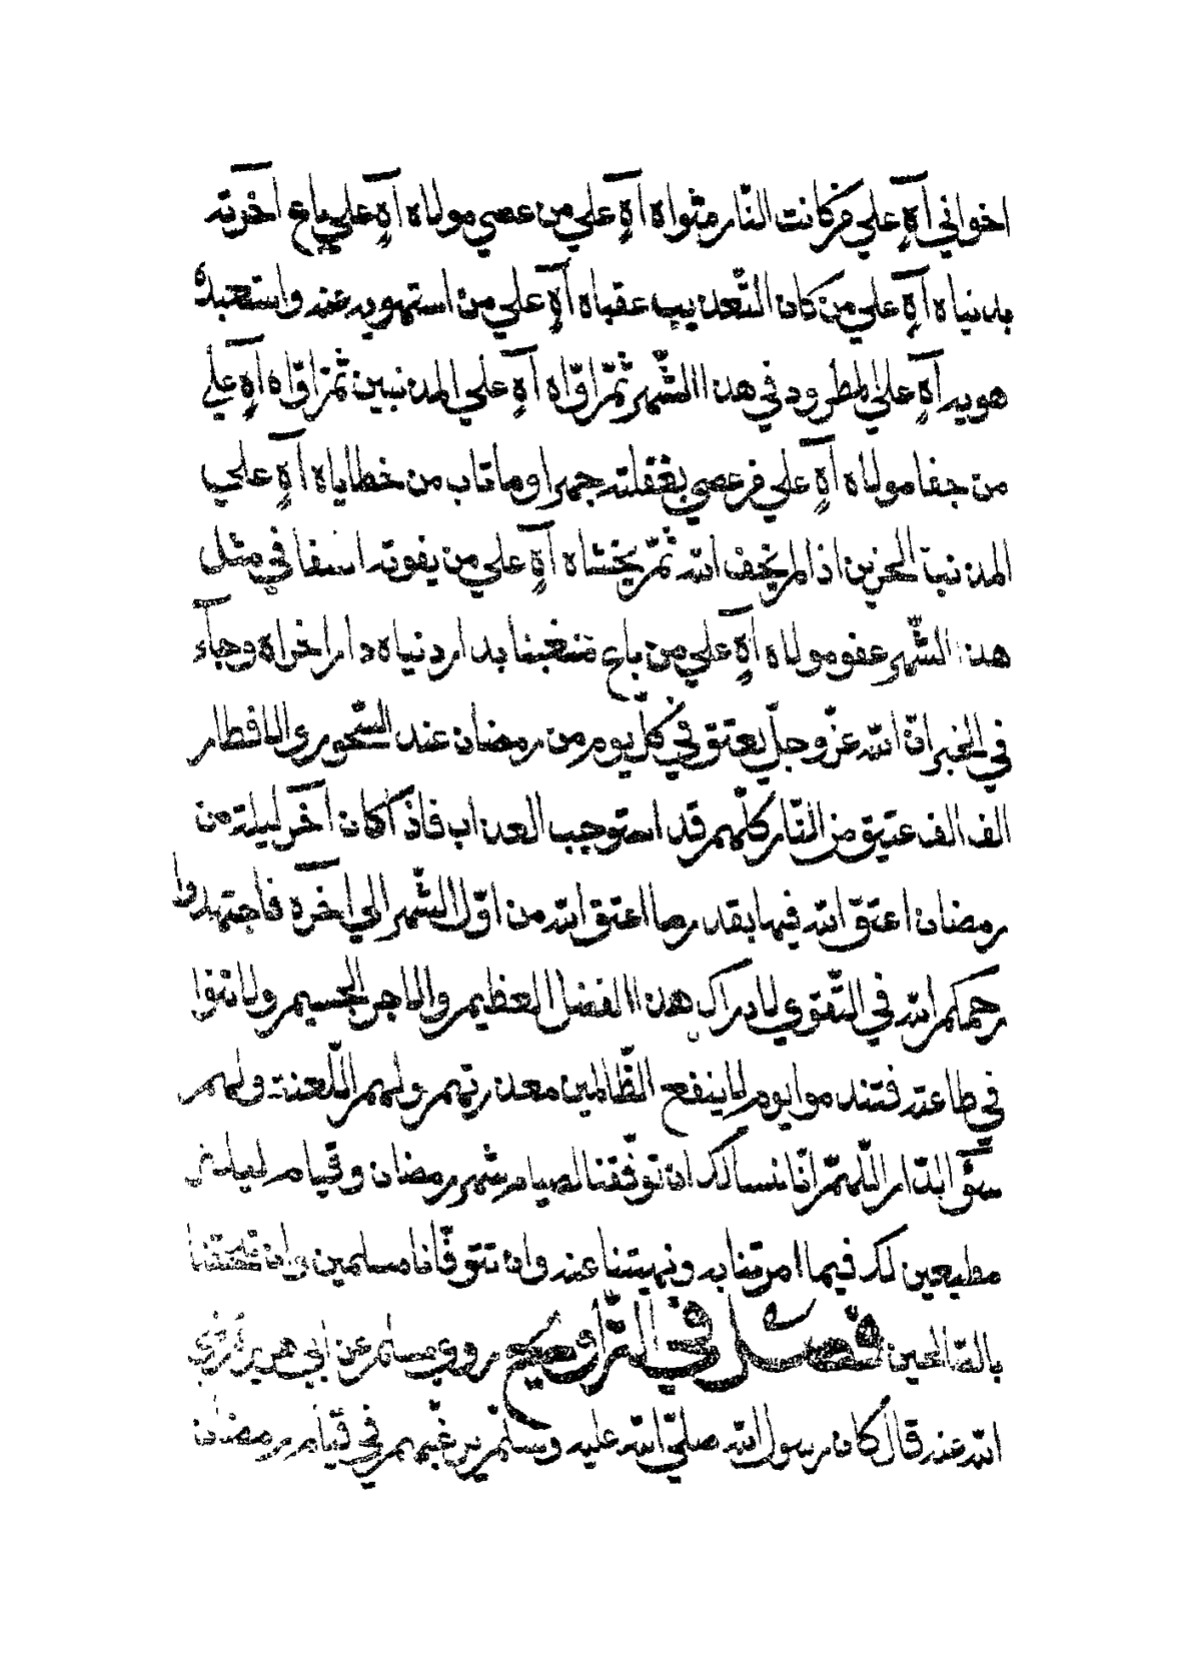 اخواني آهٍ علي من كانت النّار مثواه آهٍ علي من عصي مولاه آهٍ علي باع آخرته
بدنياه آهٍ علي من كان التّعذيب عقباه آهٍ علي من استهويه عند واستعبده
هويه آهٍ علي المطرود في هذا الشّهر ثمّ اوّاه آهٍ علي المذنبين ثمّ اوّاه آهٍ علي
من جفا مولاه آهٍ علي من عصي بغفلته جهرا وما تاب من خطاياه آهٍ علي
المذنب الحزين اذا لم يخف الله ثمّ يخشاه آهٍ علي من يفوته اسفا في مثل
هذا الشّهر عفو مولاه آهٍ علي من باع بدار دنياه دار اخراه وجآء
في الخبر انّ الله عزّ وجلّ يعتق في كلّ يوم من رمضان عند السّحور والافطار
الف الف عتيق من النّار كلّهم قد استوجب العذاب فاذا كان آخر ليلة من
رمضان اعتق الله فيها بقدر ما اعتق الله من اوّل الشّهر الي آخره فاجتهدوا
رحمكم الله في التّقوي لادراك هذا الفضل العظيم والاجر الجسيم ولا تنوا
في طاعته فتندموا يوم لا ينفع الظّالمين معذرتهم ولهم اللّعنة ولهم
سوٓء الدّار اللّهمّ انّا نسالك ان توفّقنا لصيام شهر رمضان وقيام لياليه
مطيعين لك فيما امرتنا به ونهيتنا عنه وان تتوفّانا مسلمين وان تلحقنا
بالصّالحين فصل في التّراويح روي مسلم عن ابي هريرة رضي
الله عنه قال كان رسول الله صلّي الله عليه وسلّم يرغّبهم في قيام رمضان